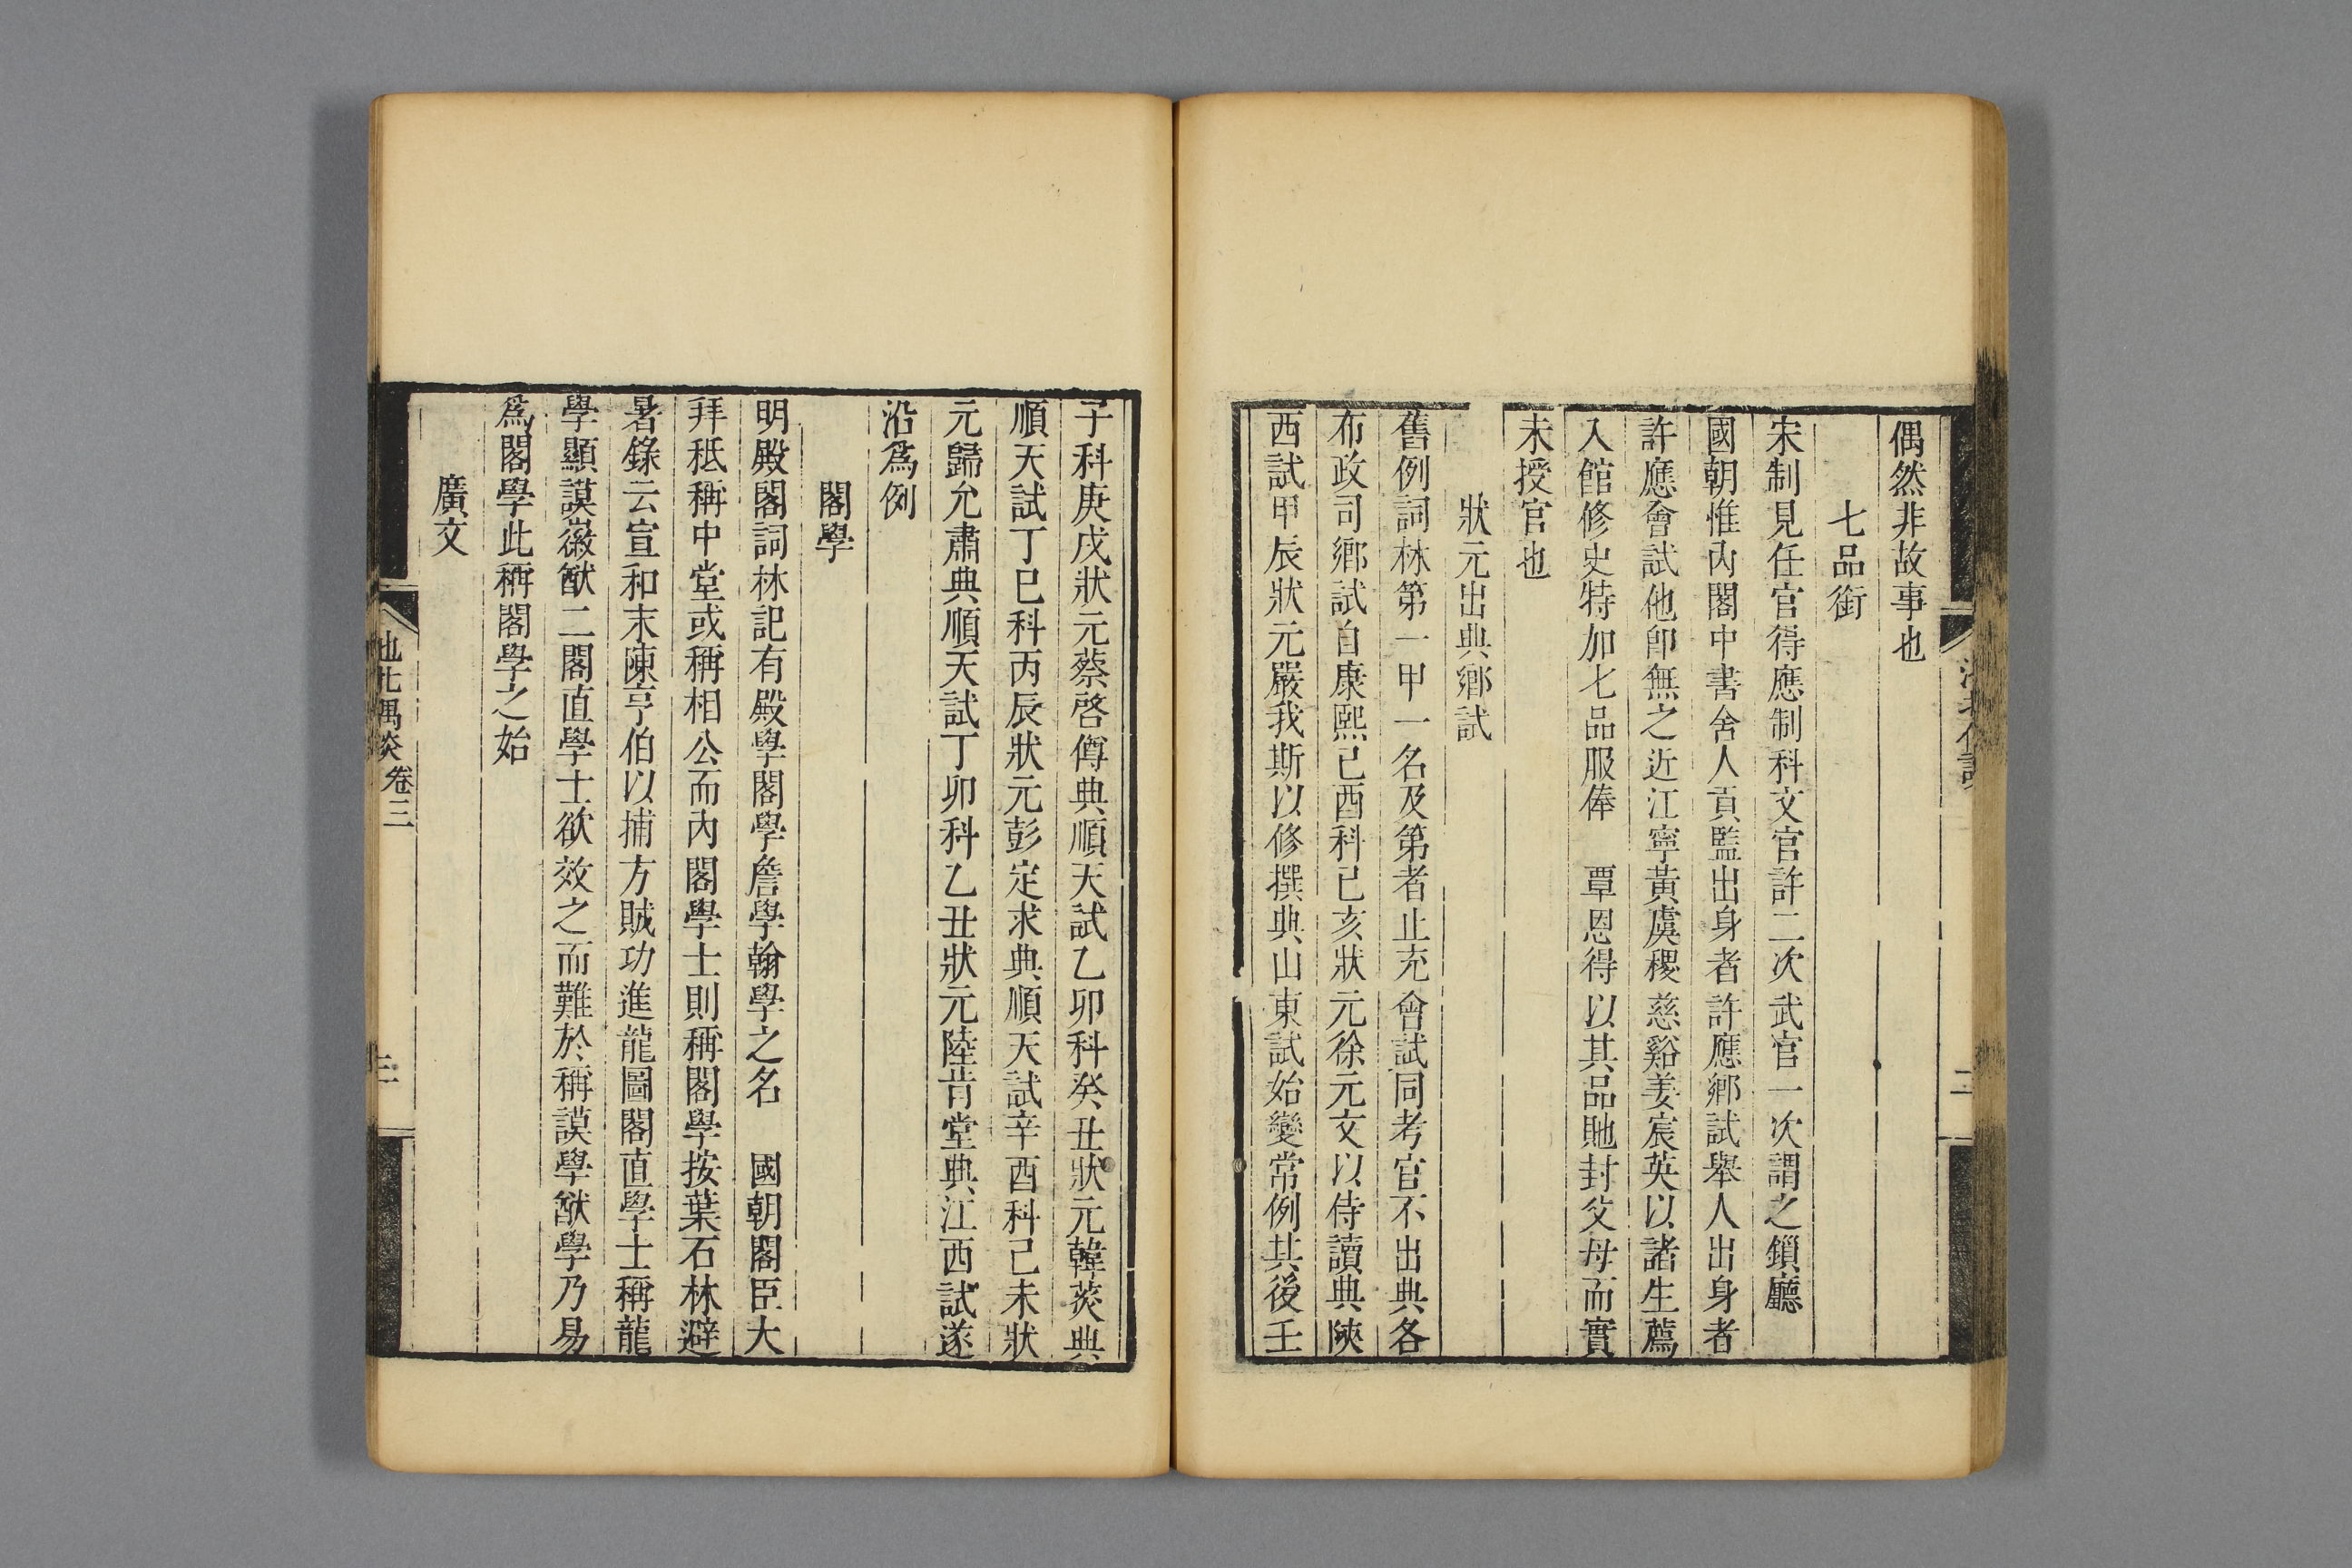 偶然非故事也
七品銜
宋制見任官得應制科文官許二次武官一次謂之鎻廳
國朝惟內閣中書舍人貢監出身者許應鄉試舉人出身者
許應會試他卽無之近江寧黃虞稷慈谿姜宸英以諸生薦
入館修史特加七品服俸　覃恩得以其品貤封父母而實
未授官也
狀元出典鄉試
舊例詞林第一甲一名及第者止充會試同考官不出典各
布政司鄉試自康熙己酉科己亥狀元徐元文以侍讀典陝
西試甲辰狀元嚴我斯以修撰典山東試始變常例其後壬
子科庚戌狀元蔡啓僔典順天試乙卯科癸丑狀元韓菼典
順天試丁巳科丙辰狀元彭定求典順天試辛酉科己未狀
元歸允肅典順天試丁卯科乙丑狀元陸肯堂典江西試遂
沿爲例
閣學
明殿閣詞林記有殿學閣學詹學翰學之名　國朝閣臣大
拜秪稱中堂或稱相公而內閣學士則稱閣學按葉石林避
暑錄云宣和末陳亨伯以捕方賊功進龍圖閣直學士稱龍
學顯謨徽猷二閣直學士欲效之而難於稱謨學猷學乃易
爲閣學此稱閣學之始
廣文
池北偶談 卷三 三